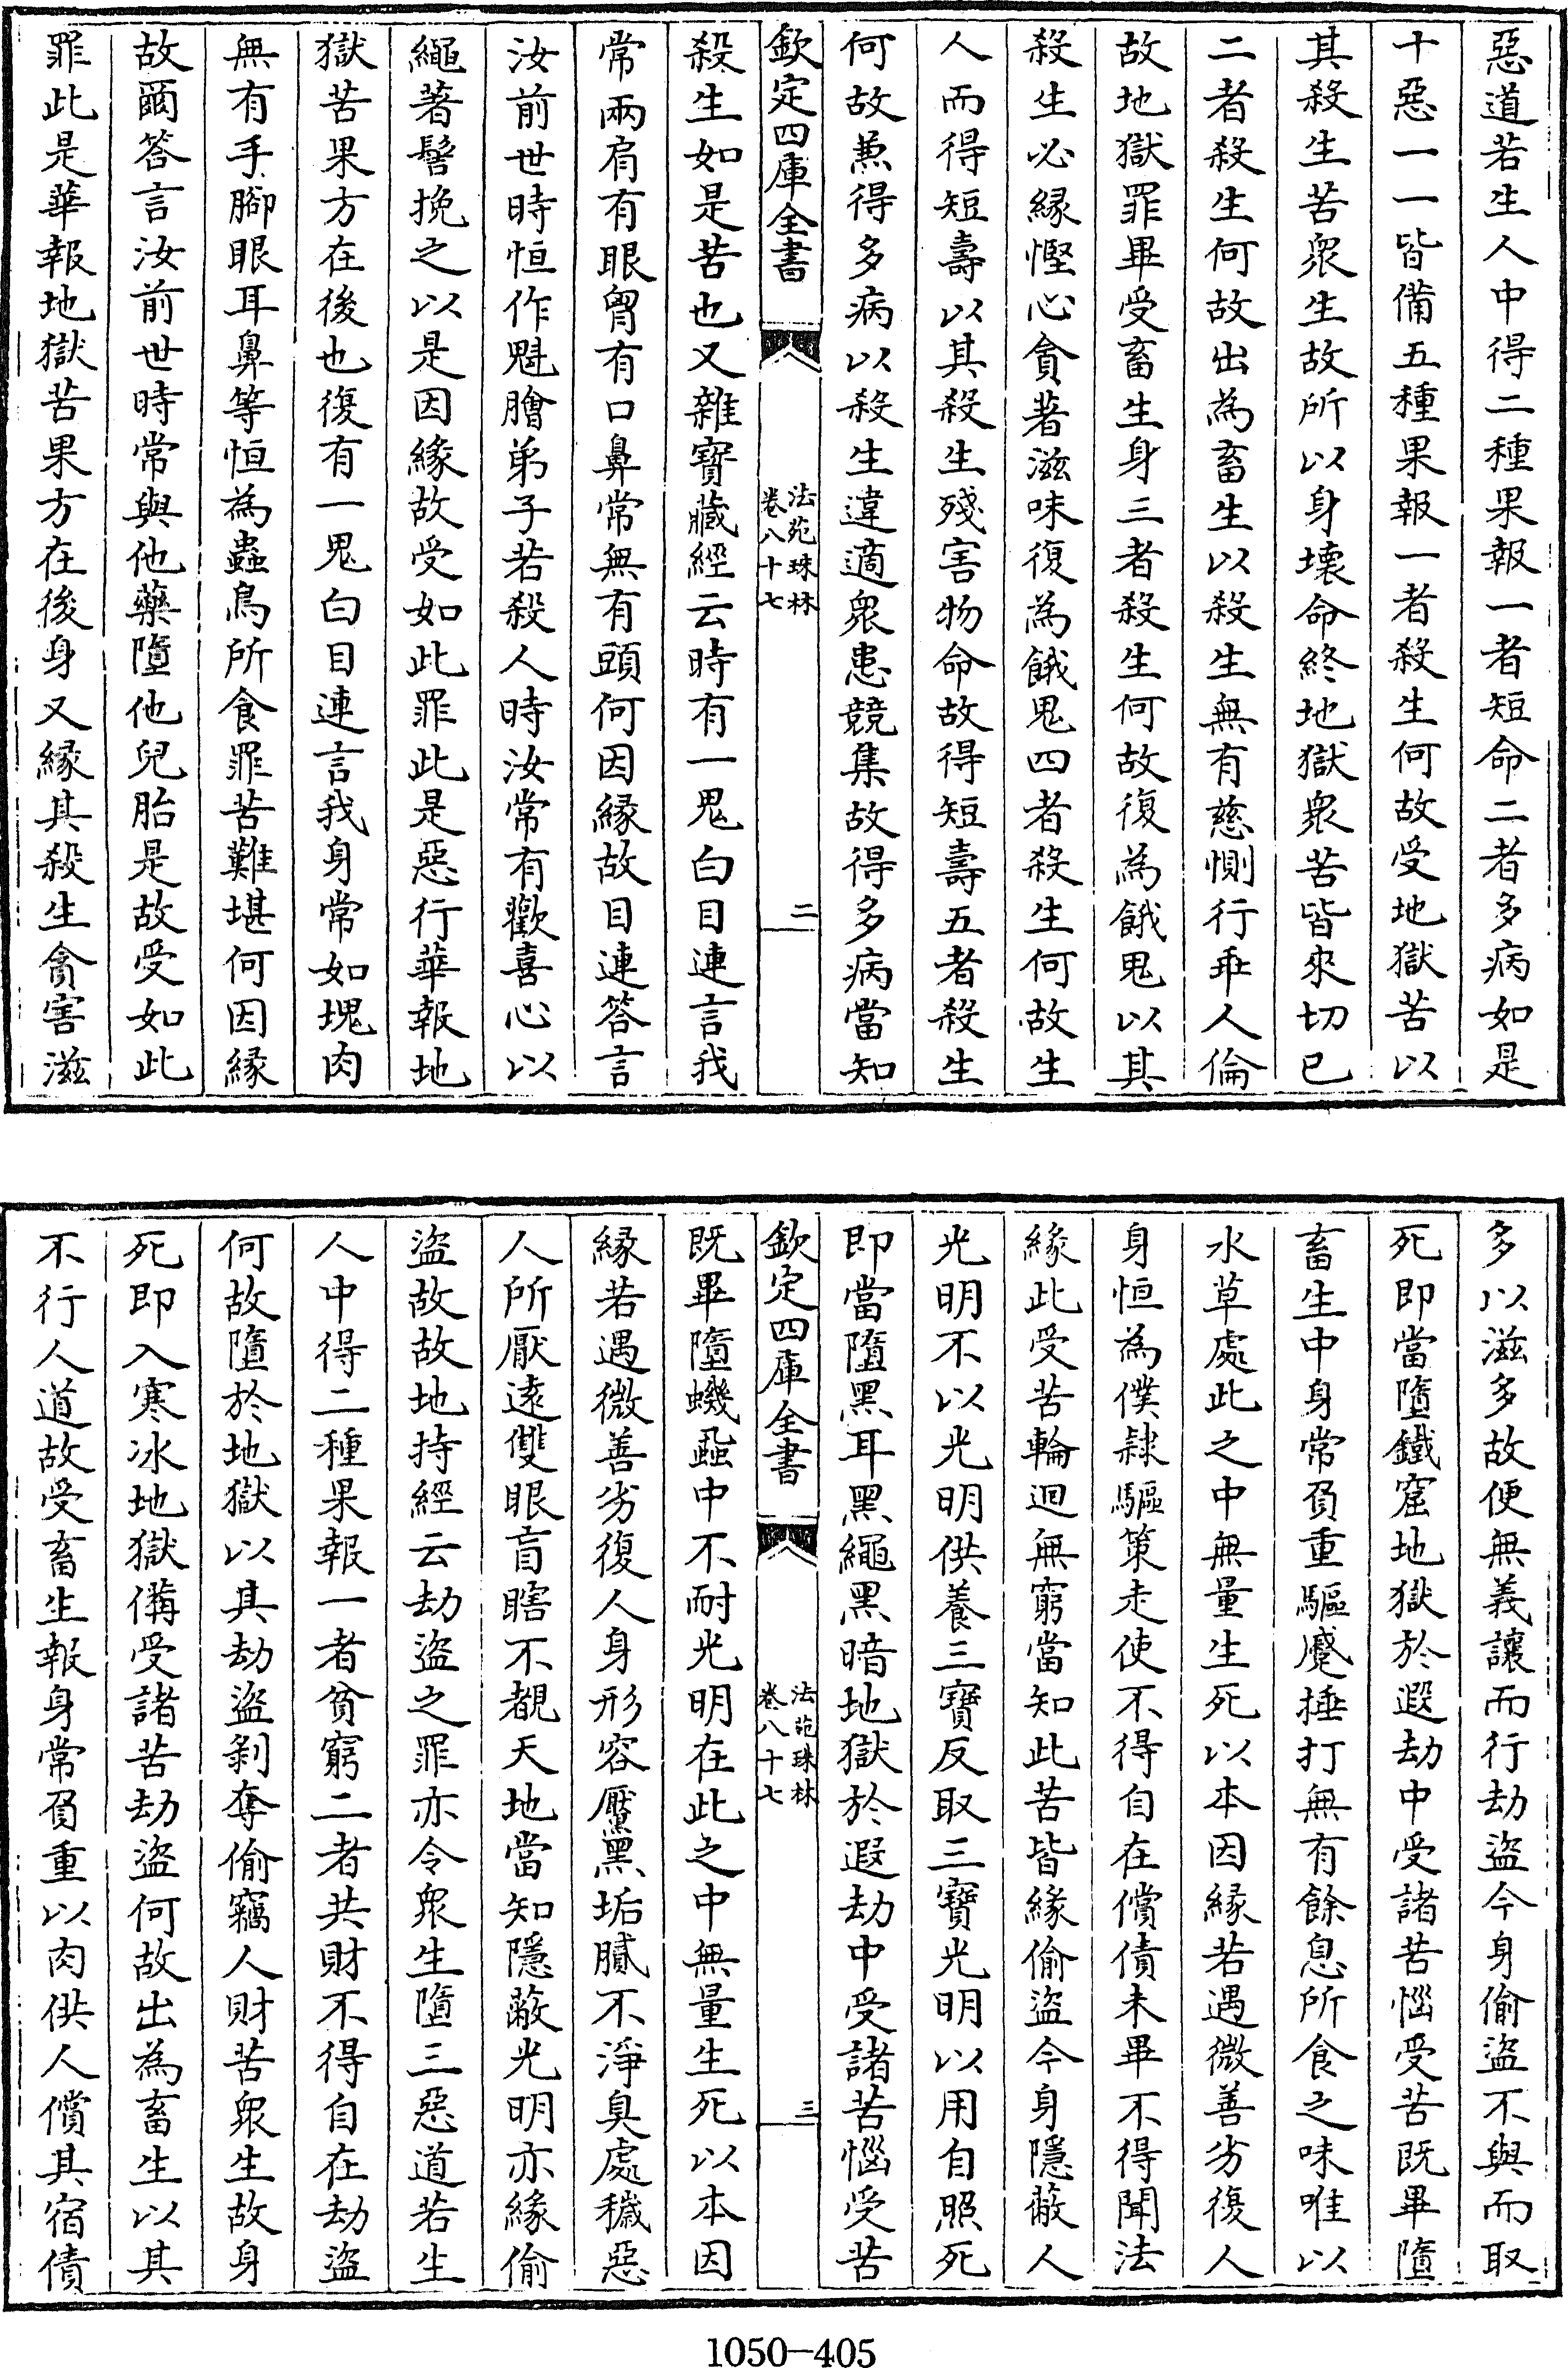 惡道若生人中得二種果報一者短命二者多病如是
十惡一一皆備五種果報一者殺生何故受地獄苦以
其殺生苦衆生故所以身壞命終地獄衆苦皆來切已
二者殺生何故出為畜生以殺生無有慈惻行乖人倫
故地獄罪畢受畜生身三者殺生何故復為餓鬼以其
殺生必緣慳心貪著滋味復為餓鬼四者殺生何故生
人而得短壽以其殺生殘害物命故得短壽五者殺生
何故兼得多病以殺生違適衆患競集故得多病當知
欽定四庫全書
法苑珠林
卷八十七
二
殺生如是苦也又雜寶藏經云時有一鬼白目連言我
常兩肩有眼胷有口鼻常無有頭何因緣故目連答言
汝前世時恒作魁膾弟子若殺人時汝常有歡喜心以
繩著髻挽之以是因緣故受如此罪此是惡行華報地
獄苦果方在後也復有一鬼白目連言我身常如塊肉
無有手腳眼耳鼻等恒為蟲鳥所食罪苦難堪何因緣
故爾答言汝前世時常與他藥墮他兒胎是故受如此
罪此是華報地獄苦果方在後身又緣其殺生貪害滋
多以滋多故便無義讓而行劫盜今身偷盜不與而取
死即當墮鐵窟地獄於遐劫中受諸苦惱受苦既畢墮
畜生中身常負重驅蹙捶打無有餘息所食之味唯以
水草處此之中無量生死以本因緣若遇微善劣復人
身恒為僕隸驅策走使不得自在償債未畢不得聞法
緣此受苦輪迴無窮當知此苦皆緣偷盜今身隱蔽人
光明不以光明供養三寶反取三寶光明以用自照死
即當墮黑耳黑繩黑暗地獄於遐劫中受諸苦惱受苦
欽定四庫全書
法苑珠林
卷八十七
三
既畢墮蟣蝨中不耐光明在此之中無量生死以本因
緣若遇微善劣復人身形容黶黑垢膩不淨臭處穢惡
人所厭遠雙眼盲瞎不覩天地當知隱蔽光明亦緣偷
盜故故地持經云劫盜之罪亦令衆生墮三惡道若生
人中得二種果報一者貧窮二者共財不得自在劫盜
何故墮於地獄以其劫盜剝奪偷竊人財苦衆生故身
死即入寒冰地獄備受諸苦劫盜何故出為畜生以其
不行人道故受畜生報身常負重以肉供人償其宿債
1050-405